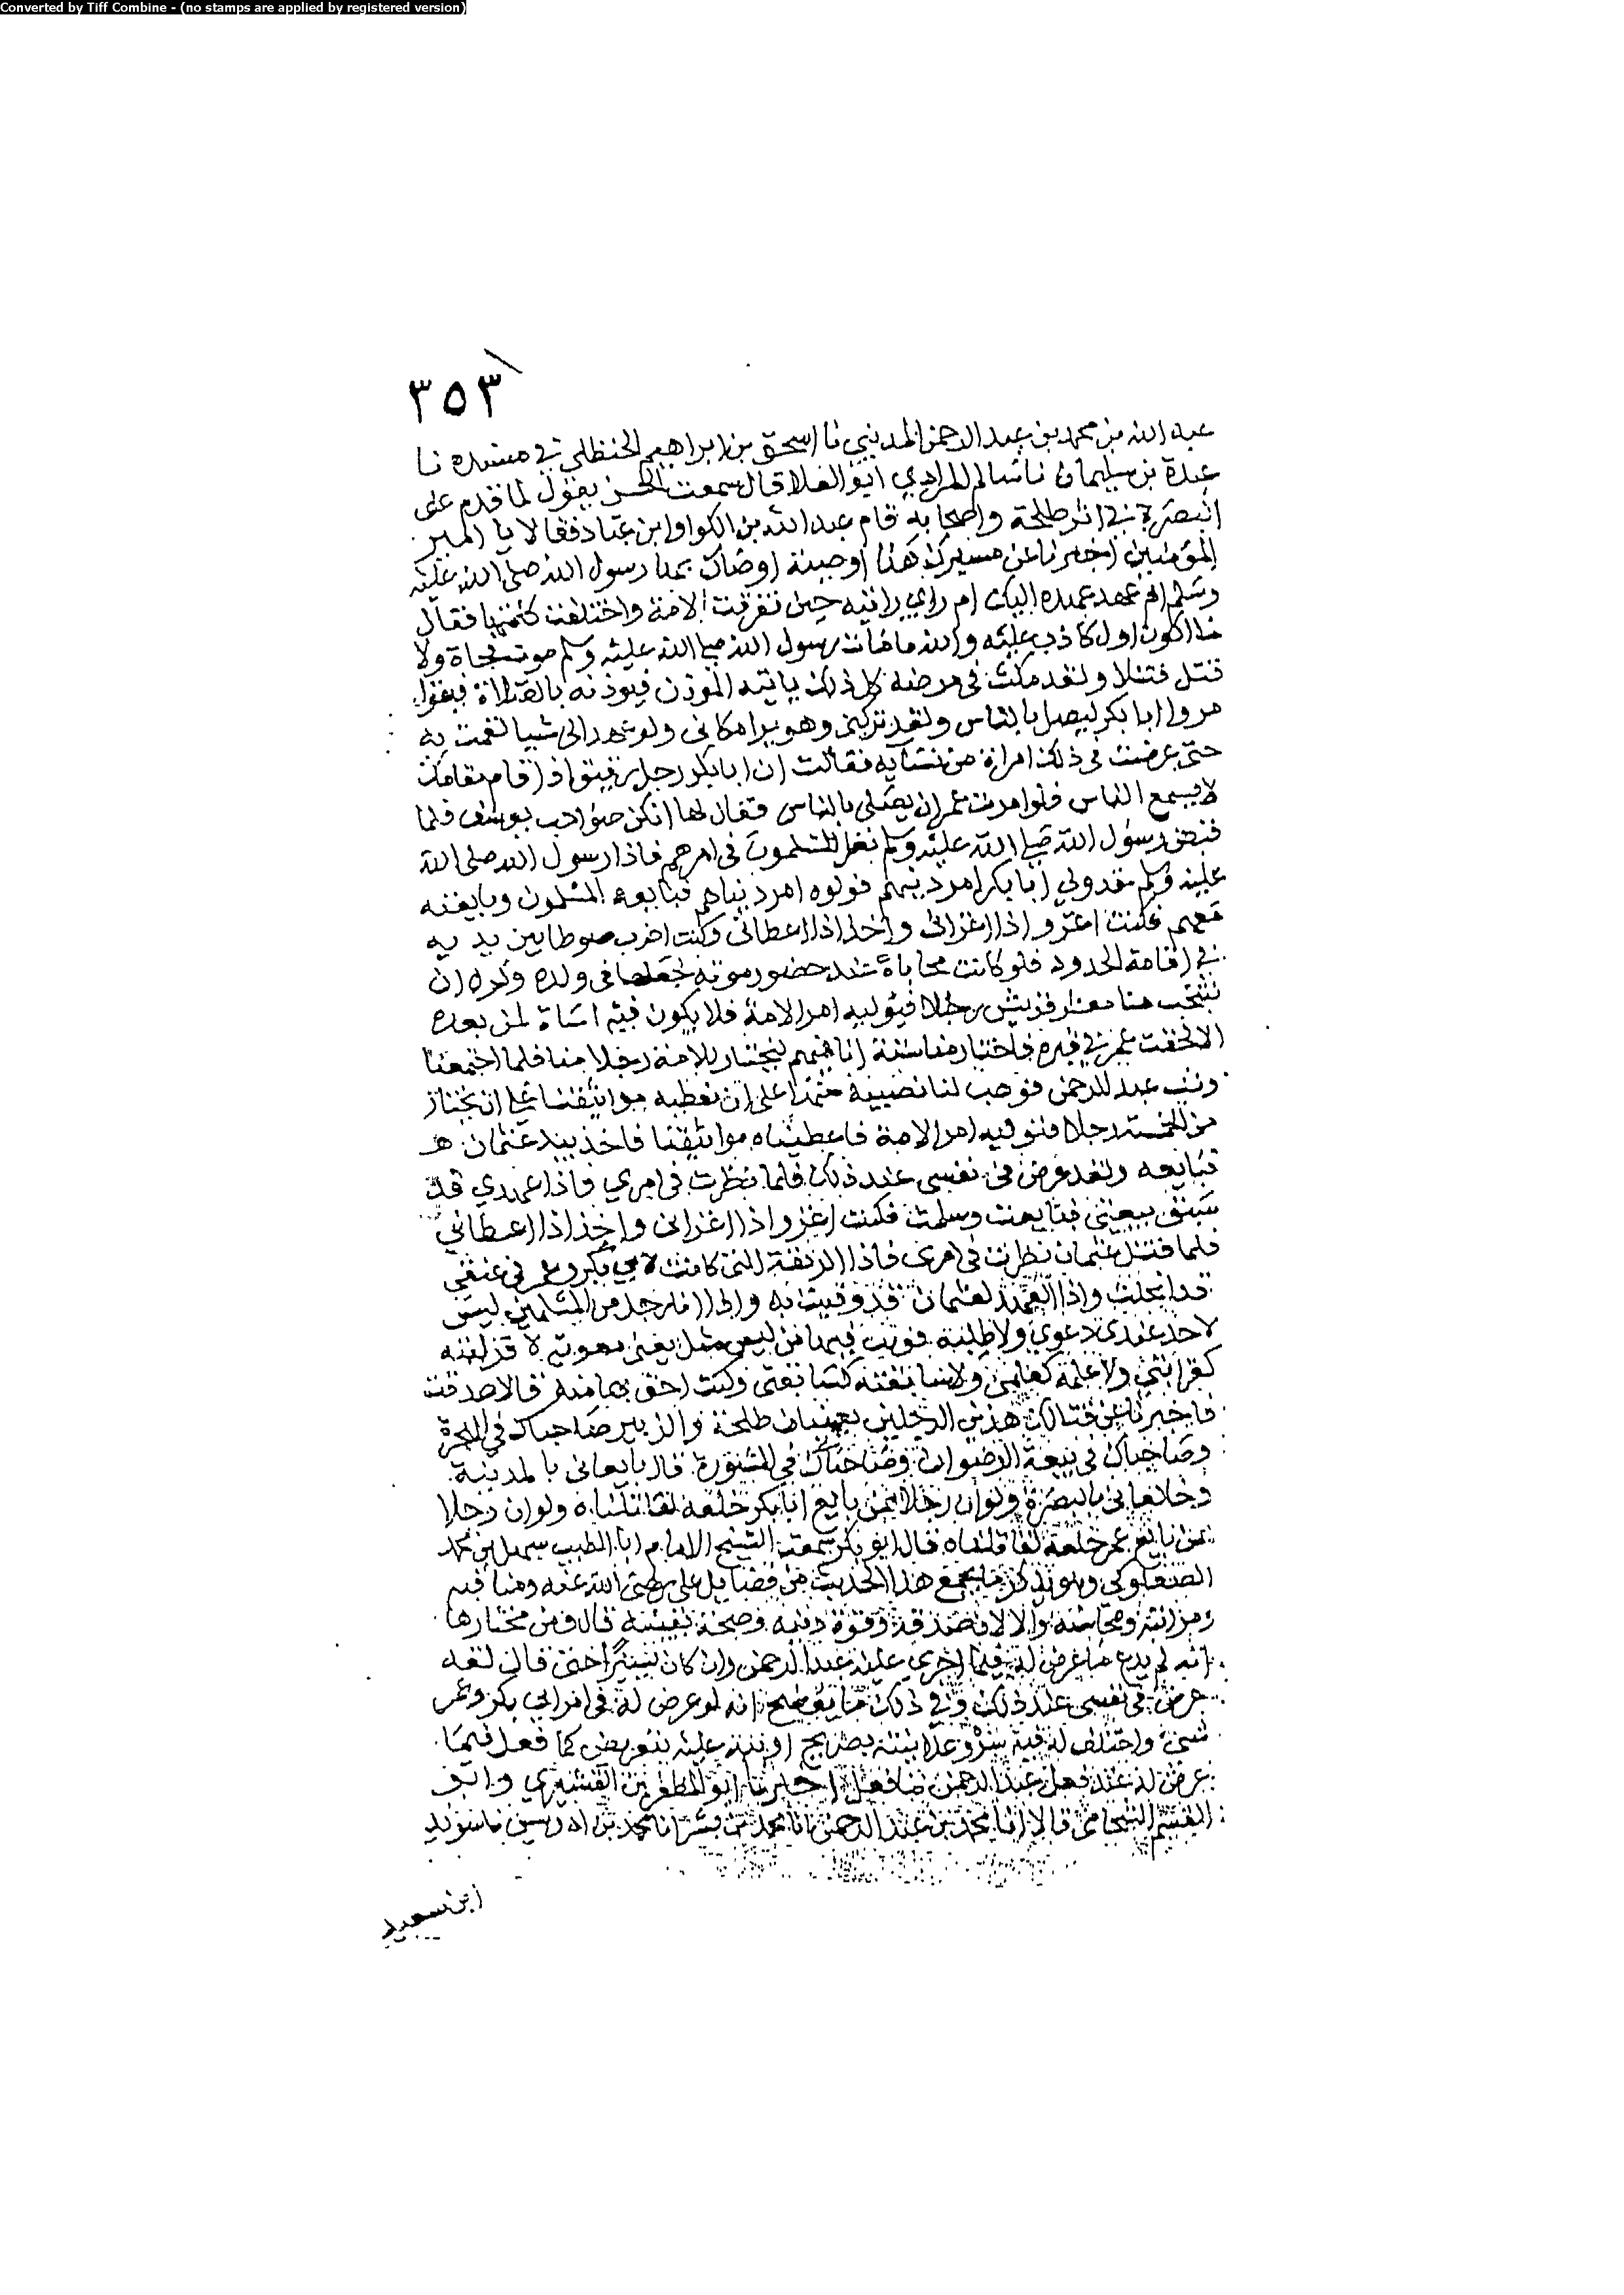 Converted by Tiff Combine - (no stamps are applied by registered version)
٣٥٣
عبد الله بن محمد بن عبد الرحمن المديني نا اسحق بن ابراهيم الحنظلي في مسنده نا
عبدة بن سليمان نا سالم المرادي ابو العلا قال سمعت الحسن يقول لما قدم على
البصرة في اثر طلحة واصحابه قام عبد الله بن الكوا وابن عباد فقالا يا امير
المؤمنين اخبرنا عن مسيرك هذا اوصية اوصاك بها رسول الله صلى الله عليه
وسلم ام عهد عهده اليك ام راي رايته حين تفرقت الامة واختلفت كلمتها فقال
ما اكون اول كاذب عليه والله ما مات رسول الله صلى الله عليه وسلم موت فجاة ولا
قتل قتلا ولقد مكث في مرضه كل ذلك ياتيه الموذن فيوذنه بالصلاة فيقول
مروا ابا بكر ليصل بالناس ولقد تركني وهو يرا مكاني ولو عهد الى شيا لقمت به
حتى عرضت في ذلك امراة من نسايه فقالت ان ابا بكر رجل رقيق اذا قام مقامك
لا يسمع الناس فلو امرت عمر ان يصلى بالناس فقال لها انكن صواحب يوسف فلما
قبض رسول الله صلى الله عليه وسلم نظر المسلمون في امرهم فاذا رسول الله صلى الله
عليه وسلم قد ولي ابا بكر امر دينهم فولوه امر دنياهم فبايعه المسلمون وبايعته
معهم فكنت اغزو اذا اغزاني واخذ اذا اعطاني وكنت اضرب سوطا بين يديه
في اقامة الحدود فلو كانت محاباة عند حضور موته لجعلها في ولده وكره ان
ينتخب منا معشر قريش رجلا فيوليه امر الامة فلا يكون فيه اساة لمن بعده
الا لحقت عمر في قبره فاختار منا ستة انا فيهم ليختار للامة رجلا منا فلما اجتمعنا
وثب عبد الرحمن فوهب لنا نصيبه منها على ان نعطيه مواثيقنا على ان يختار
من الخمسة رجلا فنوليه امر الامة فاعطيناه مواثيقنا فاخذ بيد عثمان
فبايعه ولقد عرض في نفسي عند ذلك فلما نظرت في امري فاذا عهدي قد
سبق بيعتي فبايعت وسلمت فكنت اغزو اذا اغزاني واخذ اذا اعطاني
فلما قتل عثمان نظرت في امري فاذا الربقة التي كانت لابي بكر وعمر في عنقي
قد انحلت واذا العهد لعثمان قد وفيت به واذا انا رجل من المسلمين ليس
لاحد عندي دعوي ولا طلبة فوثب فيها من ليس مثلي يعني معوية لا قرابته
كقرابتي ولا علمه كعلمي ولا سابقته كسابقتي وكنت احق بها منه قالا صدقت
فاخبرنا عن قتالك هذين الرجلين يعنيان طلحة والزبير صاحباك في الهجرة
وصاحباك في بيعة الرضوان وصاحباك في المشورة قال بايعاني بالمدينة
وخالفاني بالبصرة ولو ان رجلا ممن بايع ابا بكر خلعه لقاتلناه ولو ان رجلا
ممن بايع عمر خلعه لقاتلناه قال ابو بكر سمعت الشيخ الامام ابا الطيب سهل بن محمد
الصعلوكي وهو يذكر ما يجمع هذا الحديث من فضايل على رضي الله عنه ومناقبه
ومزاتبه ومحاسنه ودلالات صدقه وقوة دينه وصحة بيعته قال ومن مختارها
انه لم يدع ما عرض له فيما اجري عليه عبد الرحمن وان كان يسيرا حتى قال لقد
عرض في نفسي عند ذلك وفي ذلك ما يوضح انه لو عرض له في امر ابي بكر وعمر
شيء واختلف له فيه سر وعلانية بصريح او نبه عليه بتعريض كما فعل فيما
عرض له عند فعل عبد الرحمن ما فعل اخبرنا ابو المظفر بن القشيري وابو
القسم الشحامي قالا انا محمد بن عبد الرحمن انا محمد بن بشر انا محمد بن ادريس نا سويد
ابن سعيد